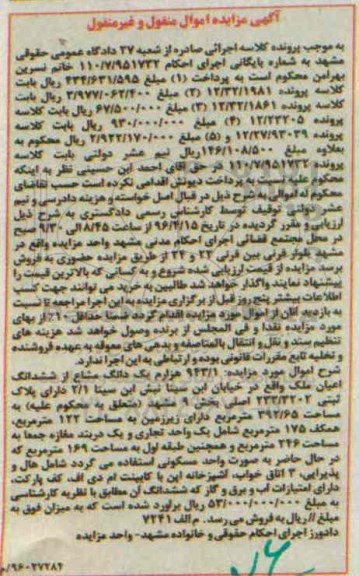 آگهی مزایده اموال منقول و غیرمنقول
به موجب پرونده کلاسه اجرائی صادره از شعبه ۲۷ دادگاه عمومی حقوقی
مشهد به شماره بایگانی اجرای احکام ۱۱۰/۷/۹۵۱۷۳۲ خانم نسرین
بهرامن محکوم است به پرداخت (۱) مبلغ ۴۳۴/۶۳۱/۵۹۵ ریال بابت
کلاسه پرونده ۱۲/۳۲/۱۹۸۱ (۲) مبلغ ۳/۹۷۷/۰۶۲/۴۰۰ ریال بابت
کلاسه پرونده ۱۲/۳۲/۱۸۶۱ (۳) مبلغ ۶۷/۵۰۰/۰۰۰ ریال بابت
پرونده ۱۲/۲۳۲۰۵ (۴) مبلغ ۹۳۰/۰۰۰/۰۰۰ ریال بابت کلاسه
پرونده ۱۲/۲۷/۹۳۰۳۹ و (۵) مبلغ ۲/۹۲۲/۱۷۰/۰۰۰ ریال محکوم به
بعلاوه مبلغ ۱۴۶/۱۰۸/۵۰۰ ریال نیم عشر دولتی بابت کلاسه
پرونده ۱۱۰/۷/۹۵۱۷۳۲ در حق آقای احمد ابن حسینی نظر به اینکه
محکوم علیه نسبت به پرداخت دیونش اقدامی نکرده است حسب تقاضای
محکوم له اموالی به شرح ذیل در قبال اصل خواسته و هزینه دادرسی و نیم
عشر دولتی توقیف توسط کارشناس رسمی دادگستری به شرح ذیل
ارزیابی و مقرر گردیده در تاریخ ۹۶/۴/۱۵ از ساعت ۸/۴۵ الی ۹/۳۰ صبح
در محل مجتمع قضائی اجرای احکام مدنی مشهد واحد مزایده واقع در
مشهد بلوار قرنی بین قرنی ۲۲ و ۲۴ از طریق مزایده حضوری به فروش
برسد مزایده از قیمت ارزیابی شده شروع و به کسانی که بالاترین قیمت را
پیشنهاد نمایند واگذار خواهد شد طالبین به خرید می توانند جهت کسب
اطلاعات بیشتر پنج روز قبل از برگزاری مزایده به این اجرا مراجعه تا نسبت
به بازدید آنان از اموال مورد مزایده اقدام گردد ضمنا حداقل ۱۰٪ از بهای
مورد مزایده نقدا و فی المجلس از برنده وصول خواهد شد هزینه های
تنظیم سند و نقل و انتقال بالمناصفه و بدهی های معوقه به عهده فروشنده
و تخلیه تابع مقررات قانونی بوده و ارتباطی به این اجرا ندارد.
شرح اموال مورد مزایده: ۹۴۳/۱ هزارم یک دانگ مشاع از ششدانگ
اعیان ملک واقع در خیابان ابن سینا نبش ابن سینا ۲/۱ دارای پلاک
ثبتی ۲۳۳/۳۲۰۲ اصلی بخش ۹ مشهد (متعلق به محکوم علیه) به
مساحت ۳۹۲/۶۵ مترمربع دارای زیرزمین به مساحت ۱۲۲ مترمربع،
همکف ۱۷۵ مترمربع شامل یک واحد تجاری و یک دربند مغازه جمعا به
مساحت ۲۴۶ مترمربع و همچنین طبقه اول به مساحت ۱۶۹ مترمربع که
در حال حاضر به صورت واحد مسکونی استفاده می گردد شامل هال و
پذیرایی، ۳ اتاق خواب، آشپزخانه اپن با کابینت ام دی اف، کف پارکت،
دارای امتیازات آب و برق و گاز که ششدانگ آن مطابق با نظریه کارشناسی
به مبلغ ۵۳/۰۰۰/۰۰۰/۰۰۰ ریال برآورد شده است که به میزان فوق به
مبلغ // ریال به فروش می رسد. م الف ۷۲۴۱
دادورز اجرای احکام حقوقی و خانواده مشهد- واحد مزایده
/۹۶۰۲۷۲۸۴